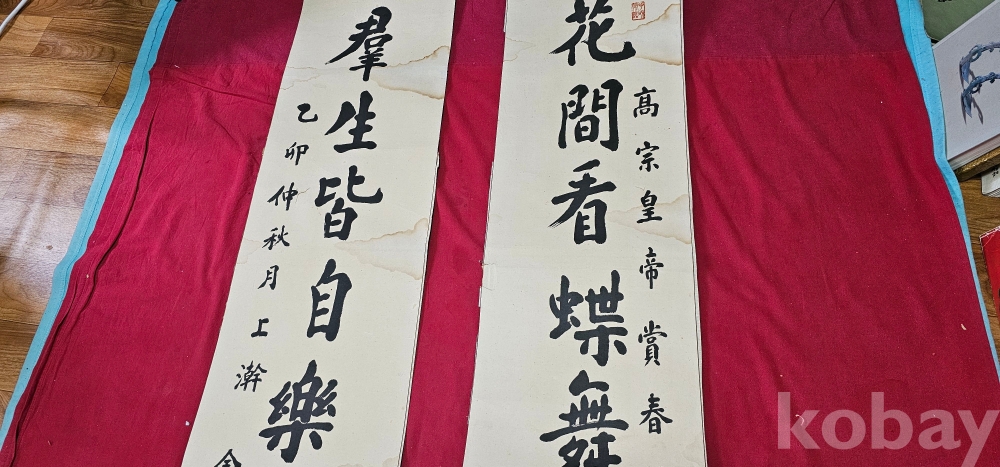 高宗皇帝賞春
花間看蝶舞
羣生皆自樂
乙卯仲秋月上澣
kobay